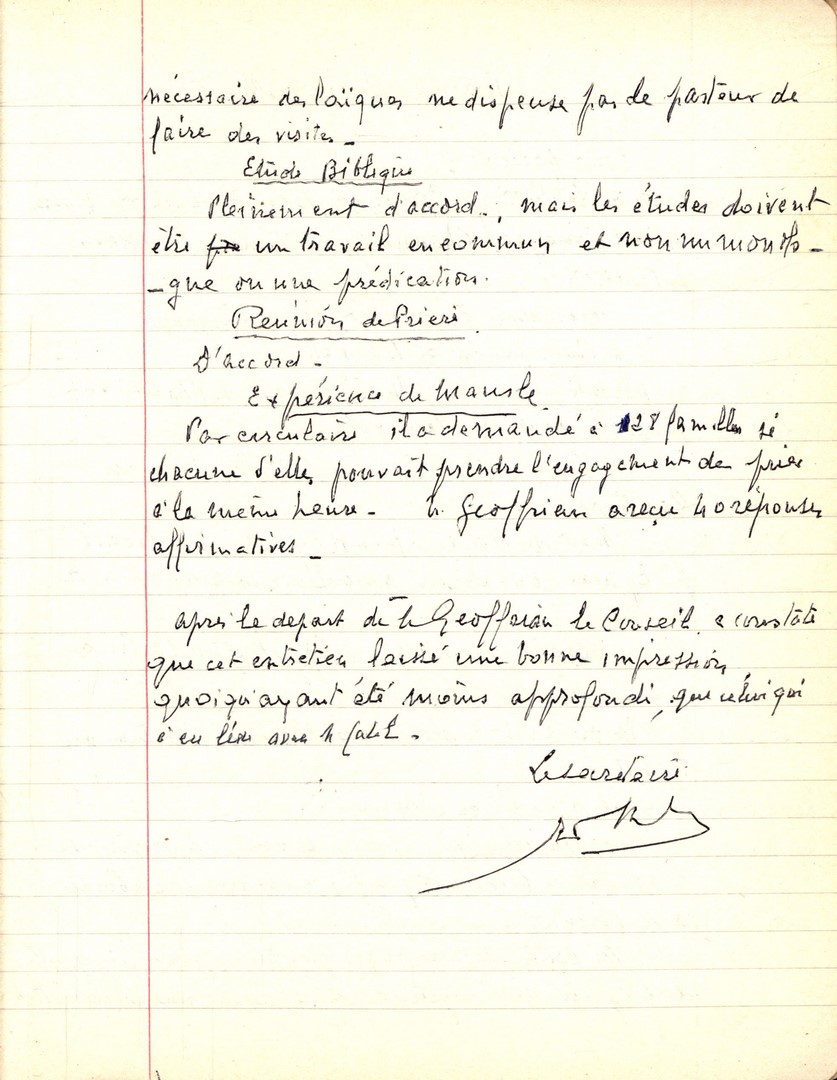 nécessaire des laïques ne dispense pas le pasteur de
faire des visites_
Etude Biblique
Pleinement d'accord, mais les études doivent
être un travail en commun et non un monolo_
_gue ou une prédication.
Réunion de Prière
D'accord_
Expérience de Mansle
Par circulaire il a demandé à 128 familles si
chacune d'elles pouvait prendre l'engagement de prier
à la même heure_ M. Geoffrian a reçu 40 réponses
affirmatives_
après le départ de M Geoffrian le Conseil a constaté
que cet entretien laissé une bonne impression
quoiqu'ayant été moins approfondi, que celui qui
à eu lieu avec M
Le secrétaire